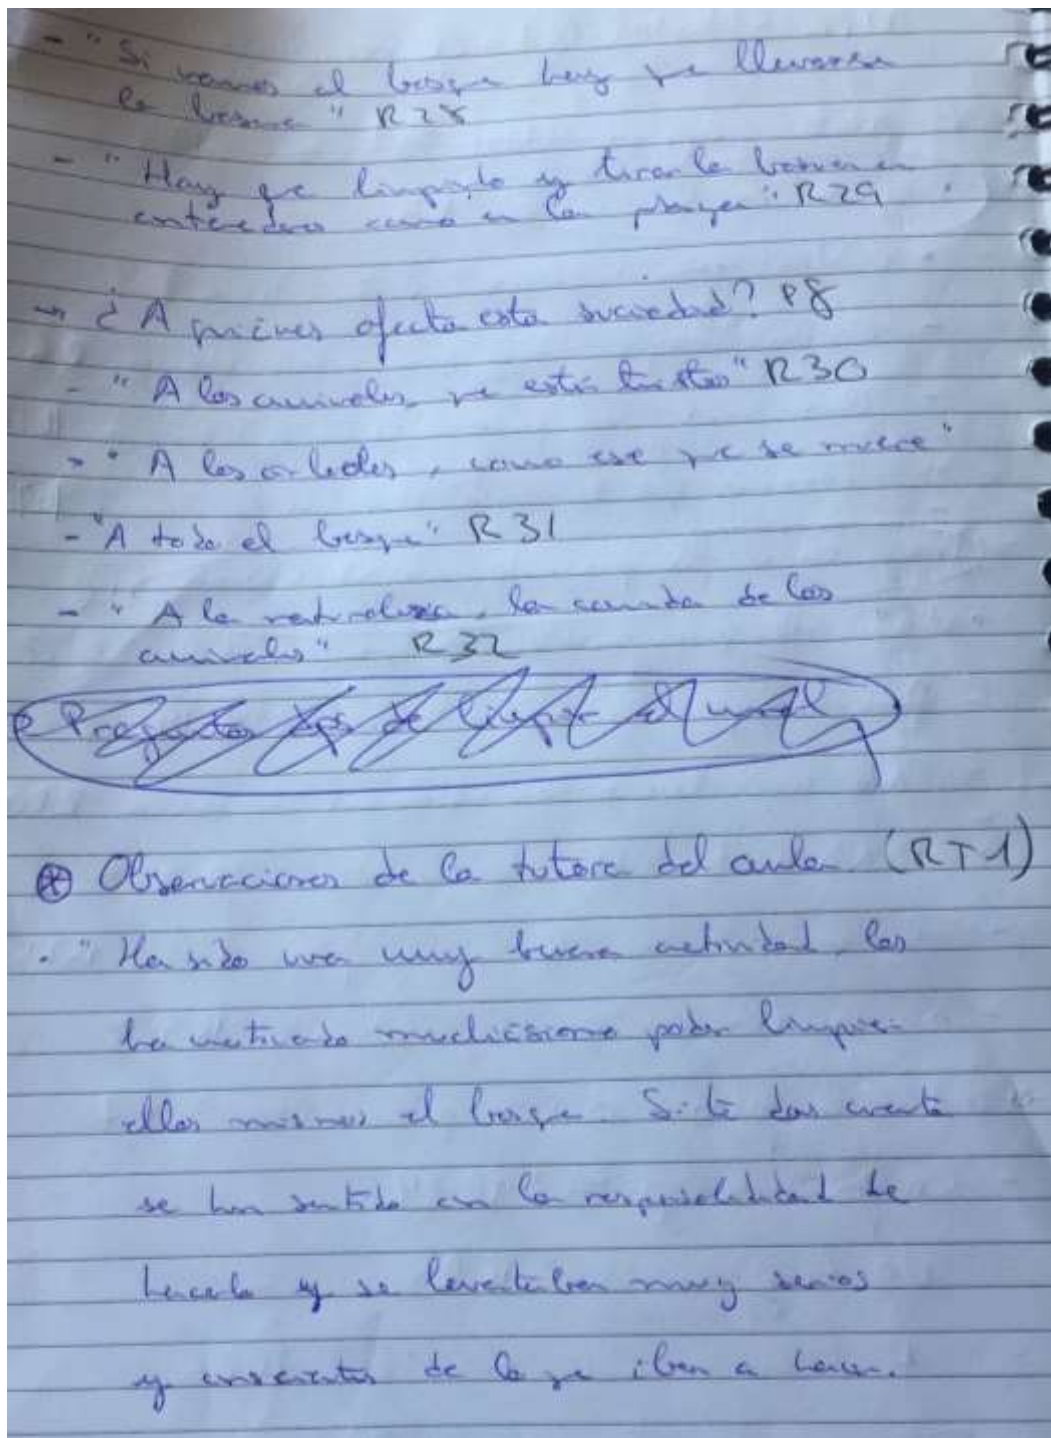 - "Si vamos al bosque hay que llevarse
la basura" R28
- "Hay que limpiarlo y tirar la basura en
contenedores como en la playa". R29
→ ¿A quiénes afecta esta suciedad? P8
- "A los animales, que están tristes" R30
- "A los árboles, como ese que se muere"
- "A todo el bosque" R31
- "A la naturaleza, la comida de los
animales" R32
Preguntas dps de limpiar el mural
⊛ Observaciones de la tutora del aula (RT1)
. "Ha sido una muy buena actividad, los
ha motivado muchísimo poder limpiar
ellos mismos el bosque. Si te das cuenta
se han sentido con la responsabilidad de
hacerlo y se levantaban muy serios
y conscientes de lo que iban a hacer.